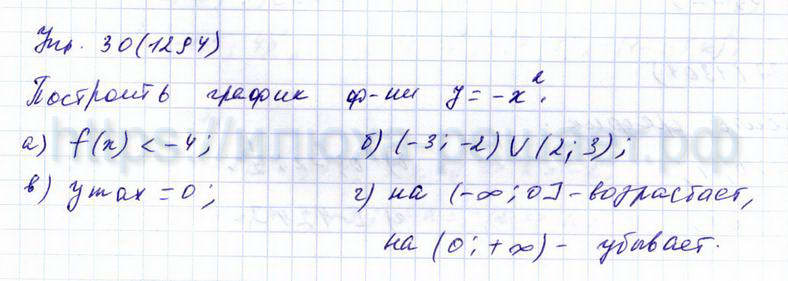 Упр. 30(1294)
Построить график ф-ии y = -x².
а) f(x) < -4; б) (-3; -2) ∪ (2; 3);
в) y max = 0; г) на (-∞; 0] - возрастает,
на (0; +∞) - убывает.